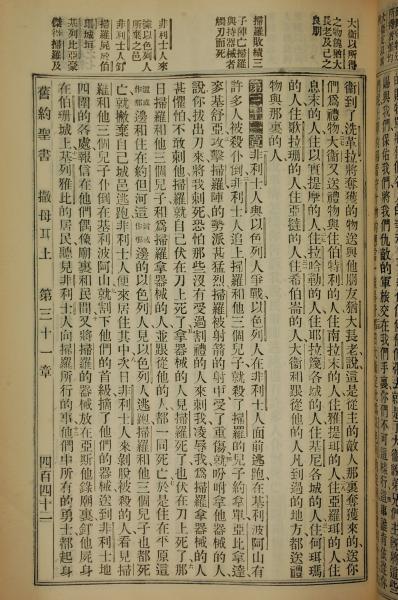 大衞以所得
之物餽猶大
長老及己之
良朋
掃羅敗績三
子陣亡掃羅
與持器械者
觸刃而死
非利士人來
據以色列人
所棄之邑
非利士人釘
掃羅屍於伯
珊城垣
基列雅比豪
傑從掃羅及
衞到了洗革拉將奪獲的物送與他朋友猶大長老說這是從主的敵人那裏奪獲來的送你
們爲禮物大衞又送禮物與住伯特利的人住南拉末的人住雅提珥的人住亞羅珥的人住
息末的人住以實提摩的人住拉哈勒的人住耶拉篾各城的人住基尼各城的人住何珥瑪
的人住歌拉珊的人住亞撻的人住希伯崙的人大衞和跟從他的人凡到過的地方都送禮
物與那裏的人
第三十一章 非利士人與以色列人爭戰以色列人在非利士人面前逃跑在基利波阿山有
許多人被殺仆倒非利士人追上掃羅和他三個兒子就殺了掃羅的兒子約拿單亞比拿達
麥基舒亞攻擊掃羅陣的勢派甚猛烈掃羅被射箭的射中受了重傷就吩咐拿他器械的人
說你拔出刀來將我刺死恐怕那些沒有受過割禮的人來刺我凌辱我爲掃羅拿器械的人
甚懼怕不敢刺他掃羅就自己伏在刀上死了拿器械的人見掃羅死了也伏在刀上死了那
日掃羅和他三個兒子和爲掃羅拿器械的人並跟從他的人都一同死了於是住在平原這
邊和住在約但河這邊的以色列人見以色列人逃跑掃羅和他三個兒子也都死
亡就撇棄自己城邑逃跑非利士人便來居住其中次日非利士人來剝被殺的人看見掃
羅和他三個兒子仆倒在基利波阿山就割下他們的首級摘了他們的器械送到非利士地
四圍的各處報信在他們偶像廟裏和民間又將掃羅的器械放在亞斯他錄廟裏釘他屍身
在伯珊城上基列雅比的居民聽見非利士人向掃羅所行的事他們中所有的勇士都起身
舊約聖書 撒母耳上 第三十一章 四百四十一